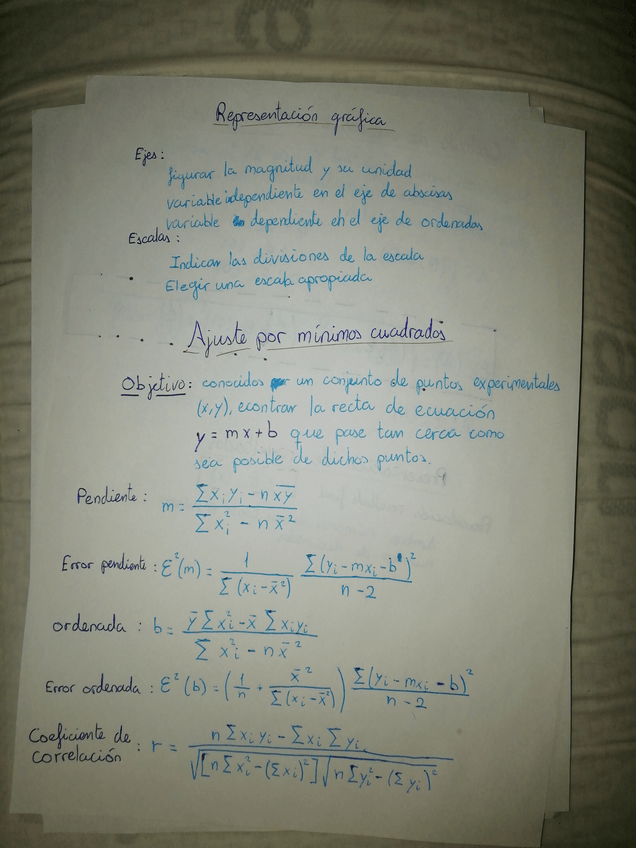 Representación gráfica
Ejes:
figurar la magnitud y su unidad
variable idependiente en el eje de abscisas
variable dependiente en el eje de ordenadas
Escalas:
Indicar las divisiones de la escala
Elegir una escala apropiada
Ajuste por mínimos cuadrados
Objetivo: conocidos un conjunto de puntos experimentales
(x,y), econtrar la recta de ecuación
y = mx + b que pase tan cerca como
sea posible de dichos puntos.
Pendiente: m = (Σ xᵢ yᵢ - n x̄ȳ) / (Σ xᵢ² - n x̄²)
Error pendiente: Ɛ²(m) = 1 / (Σ (xᵢ - x̄²)) Σ (yᵢ - mxᵢ - b)² / (n - 2)
ordenada: b = (ȳ Σ xᵢ² - x̄ Σ xᵢyᵢ) / (Σ xᵢ² - n x̄²)
Error ordenada: Ɛ²(b) = (1/n + x̄² / (Σ (xᵢ - x̄²))) Σ (yᵢ - mxᵢ - b)² / (n - 2)
Coeficiente de
correlación: r = (n Σ xᵢ yᵢ - Σ xᵢ Σ yᵢ) / (√[n Σ xᵢ² - (Σ xᵢ)²] √n Σ yᵢ² - (Σ yᵢ)²)